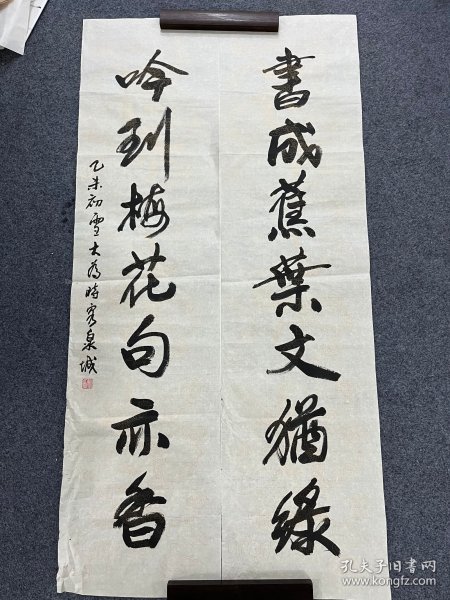 書成蕉葉文猶綠
吟到梅花句亦香
乙未初雪大為時客泉城
孔夫子旧书网
www.kongfz.com